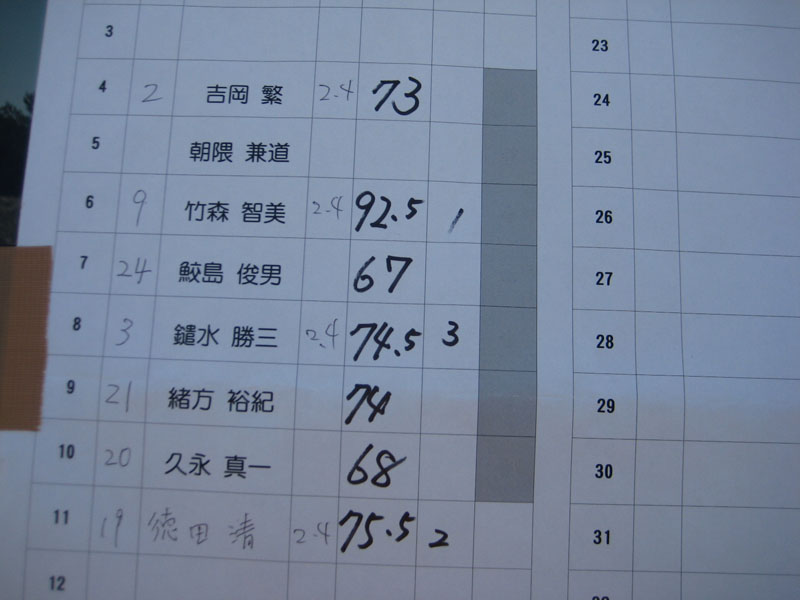 3
4 2 吉岡 繁 2.4 73
5 朝隈 兼道
6 9 竹森 智美 2.4 92.5 1
7 24 鮫島 俊男 67
8 3 鑓水 勝三 2.4 74.5 3
9 21 緒方 裕紀 74
10 20 久永 真一 68
11 19 徳田 清 2.4 75.5 2
12
23
24
25
26
27
28
29
30
31